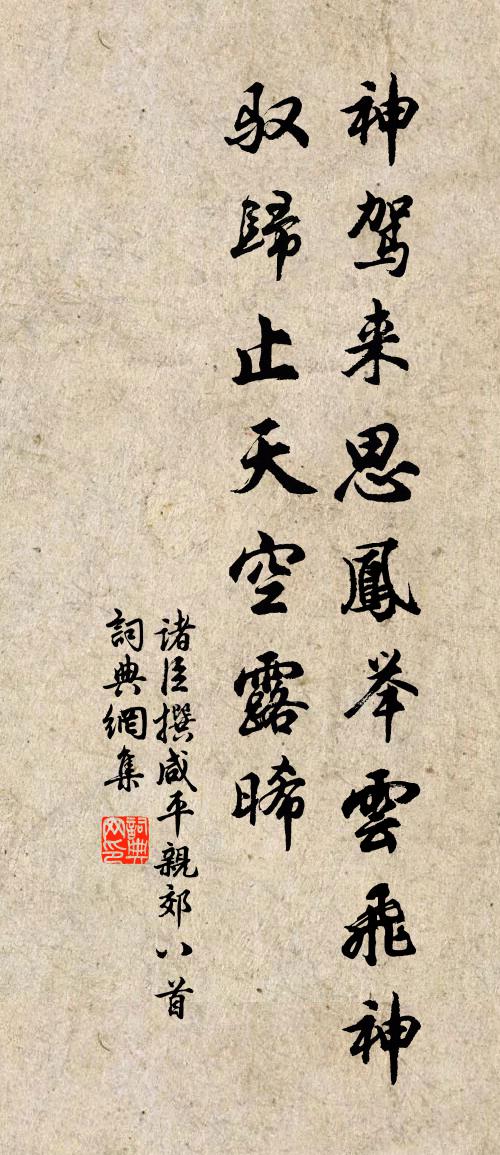 神駕来思鳳举雲飛神
馭歸止天空露晞
诸臣撰咸平親郊八首
詞典網集
詞典
网印